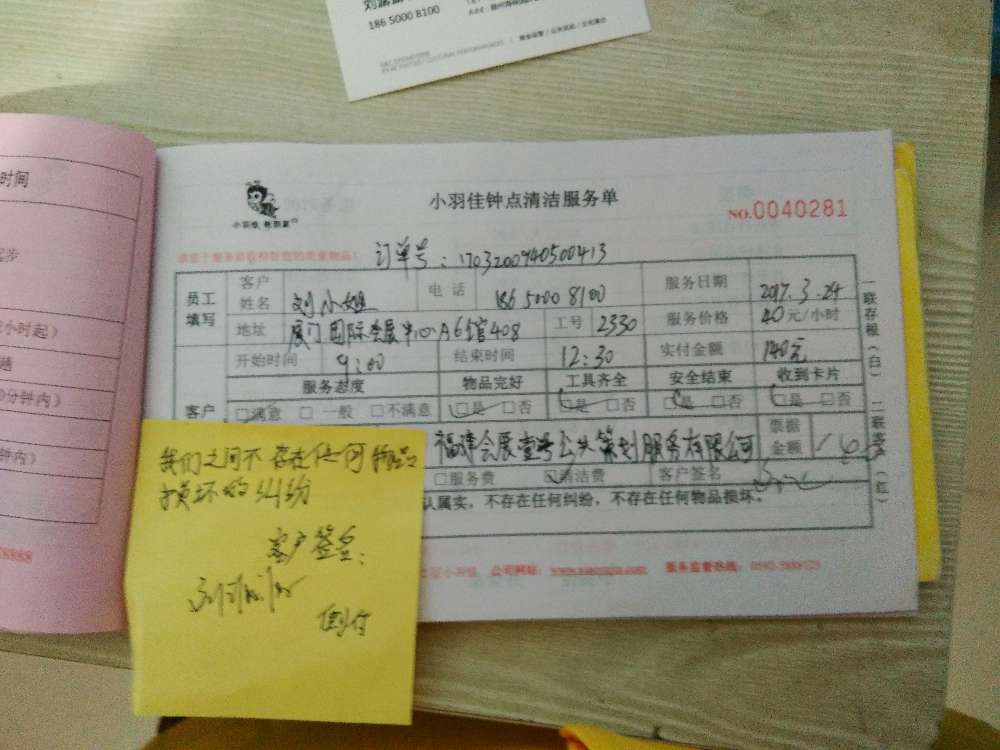 186 5000 8100
时间
小羽佳钟点清洁服务单
NO.0040281
订单号：1703200940500413
员工填写
客户姓名 刘小姐 电话 186 5000 8100 服务日期 2017.3.24
地址 厦门国际会展 A6馆408 工号 2330 服务价格 40元/小时
开始时间 9:00 结束时间 12:30 实付金额 140元
服务态度 物品完好 工具齐全 安全结束 收到卡片
客户 □满意 □一般 □不满意 □是 □否 □是 □否 □是 □否 □是 □否
福建会展壹号公共策划服务有限公司 票据金额
□服务费 □清洁费 客户签名
认属实，不存在任何纠纷，不存在任何物品损坏。
小羽佳 公司网站： 服务监督热线：
一联存根（白）
（红）
小时起）
分钟内）
钟内）
我们之间不存在任何物品
损坏的纠纷
客户签名：